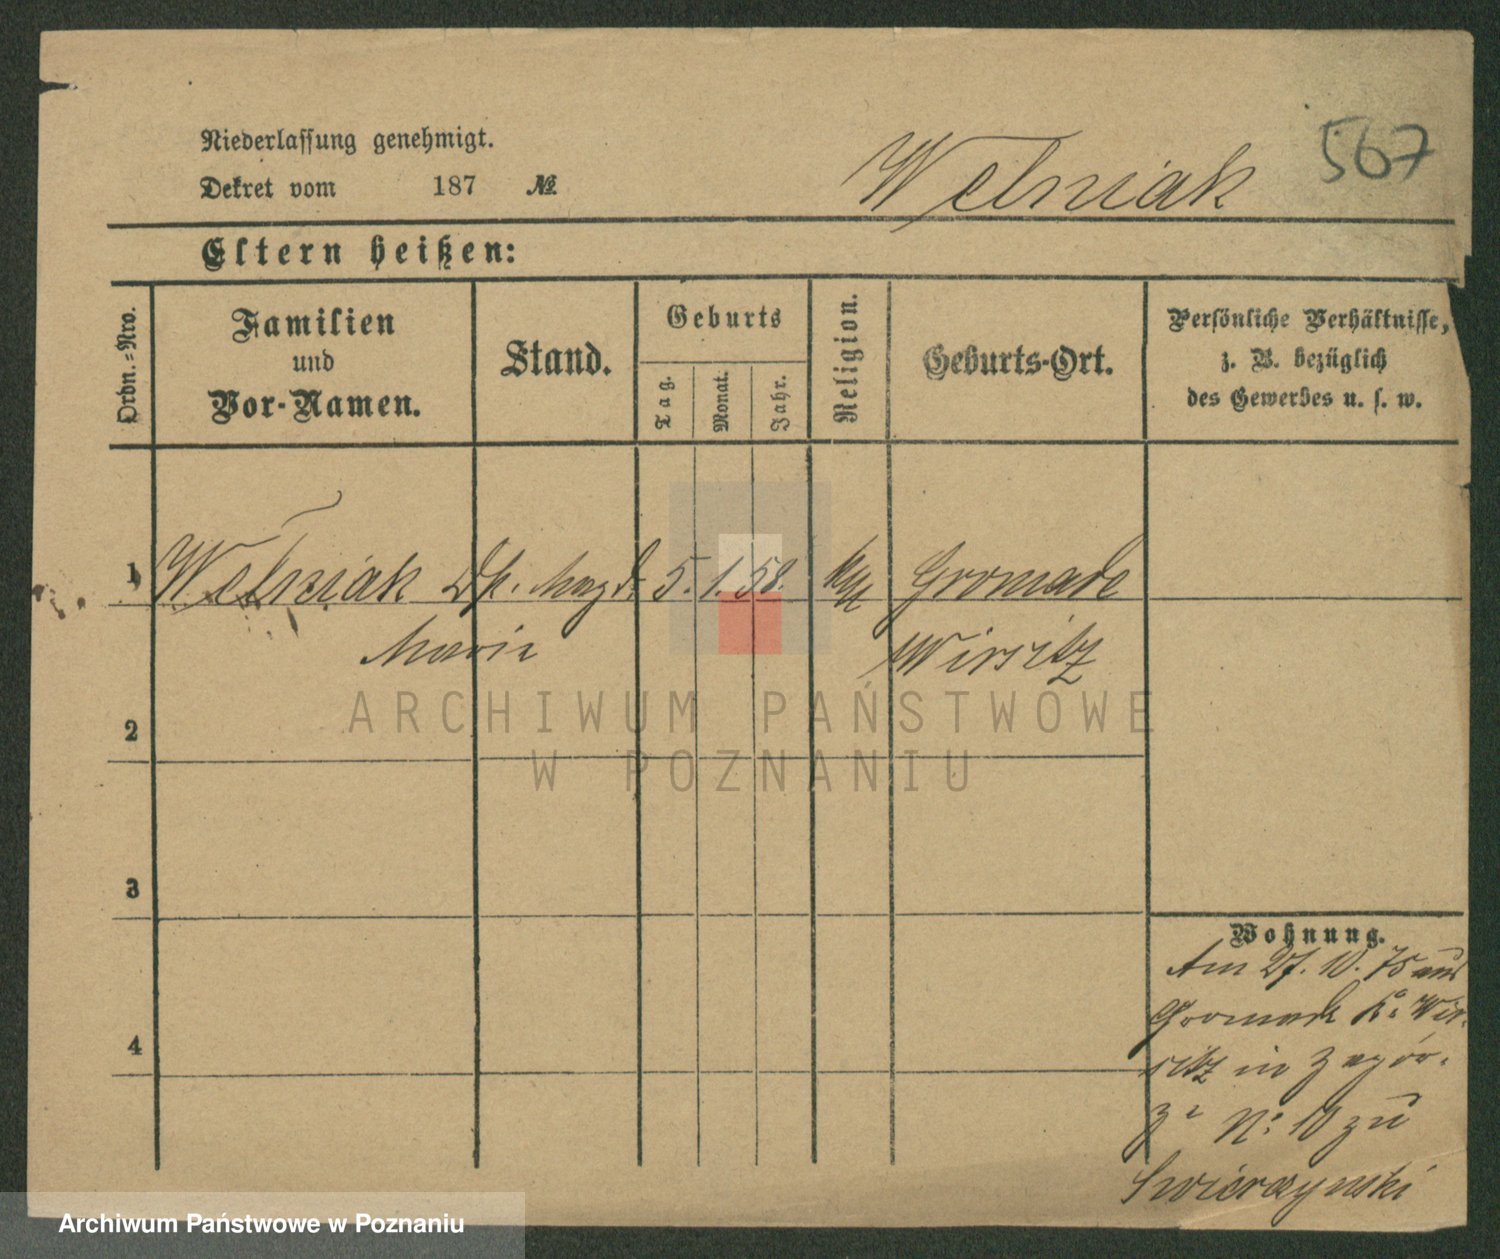 567
Niederlassung genehmigt.
Dekret vom 187 №
Welniak
Eltern heißen:
Ordn.-Nro.
Familien
und
Vor-Namen.
Stand.
Geburts
Tag.
Monat.
Jahr.
Religion.
Geburts-Ort.
Persönliche Verhältnisse,
z. B. bezüglich
des Gewerbes u. s. w.
1 Welniak Magd 5. 1. 58. Gromade
Maria Wirsitz
2
3
4
Wohnung.
Am 27. 10. 75 aus
Gromade Wir-
sitz in Zagór-
ze N: 10 zu
Swierczynski
ARCHIWUM PAŃSTWOWE
W POZNANIU
Archiwum Państwowe w Poznaniu